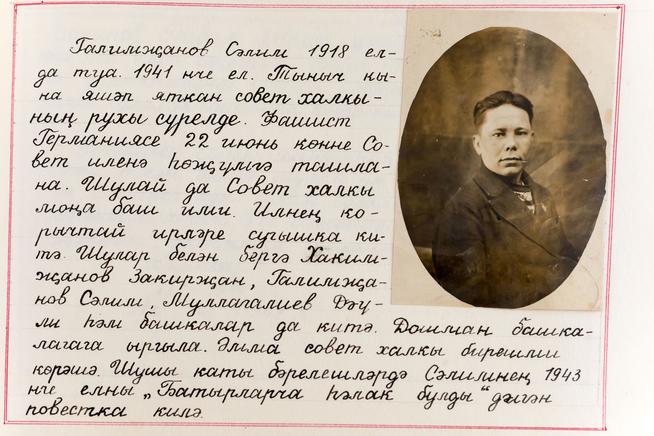 Галимҗанов Сәлим 1918 ел-
да туа. 1941 нче ел. Тыныч кы-
на яшәп яткан совет халкы-
ның рухы сүрелде. Фашист
Германиясе 22 июнь көнне Со-
вет иленә һөҗүмгә ташла-
на. Шулай да Совет халкы
моңа баш ими. Илнең ко-
рычтай ирләре сугышка ки-
тә. Шулар белән бергә Хаким-
җанов Закирҗан, Галимҗа-
нов Сәлим, Муллагалиев Дәү-
ли һәм башкалар да китә. Дошман башка-
лагага ыргыла. Әмма совет халкы бирешми
көрәшә. Шушы каты бәрелешләрдә Сәлимнең 1943
нче елны „Батырларча һәлак булды" дигән
повестка килә.